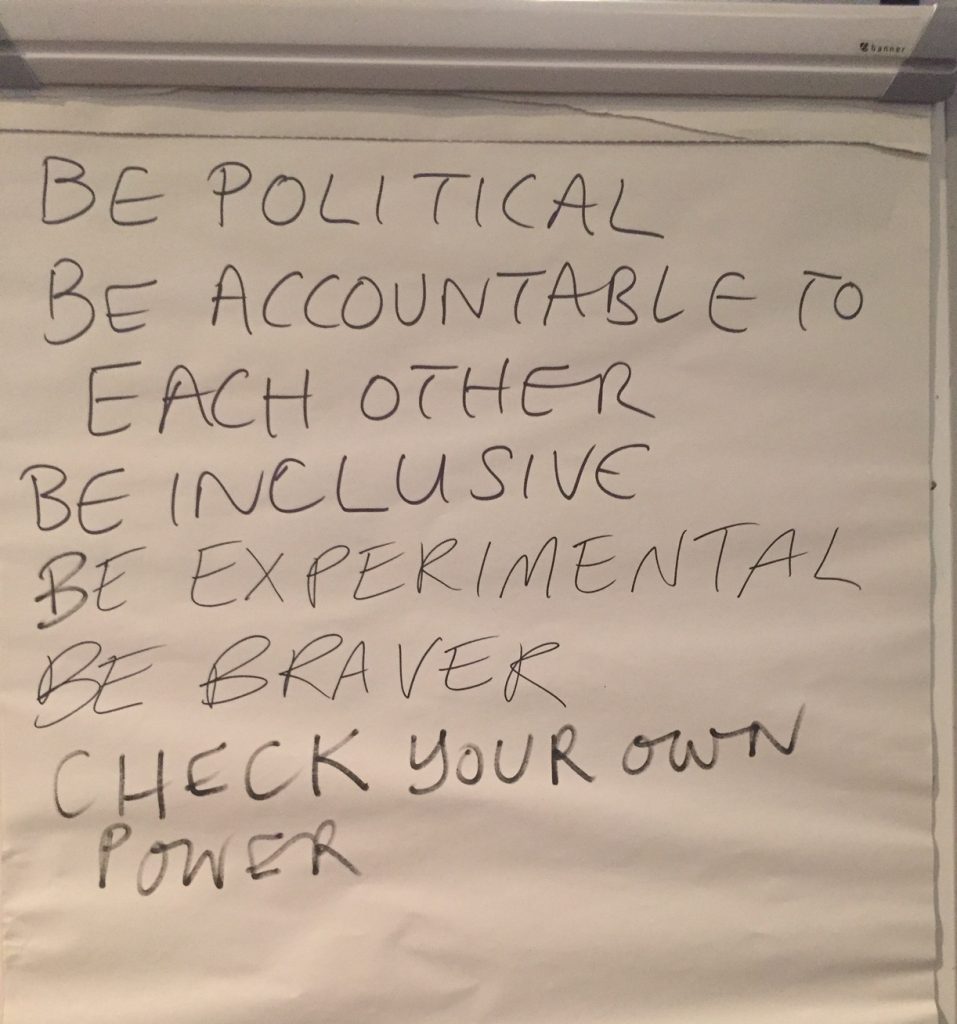 banner
BE POLITICAL
BE ACCOUNTABLE TO
EACH OTHER
BE INCLUSIVE
BE EXPERIMENTAL
BE BRAVER
CHECK YOUR OWN
POWER